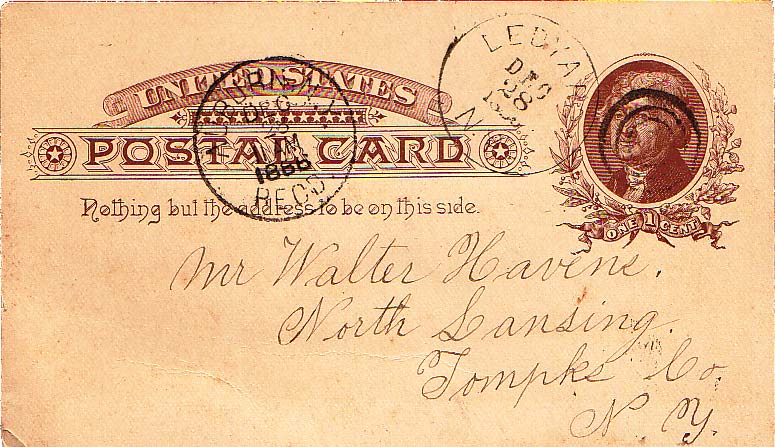 UNITED STATES
POSTAL CARD
Nothing but the address to be on this side.
ONE 1 CENT
AUBURN N.Y.
DEC
1 PM
1886
REC'D.
LEDYARD
DEC
28
N.Y.
Mr Walter Havens.
North Lansing.
Tompks Co.
N. Y.